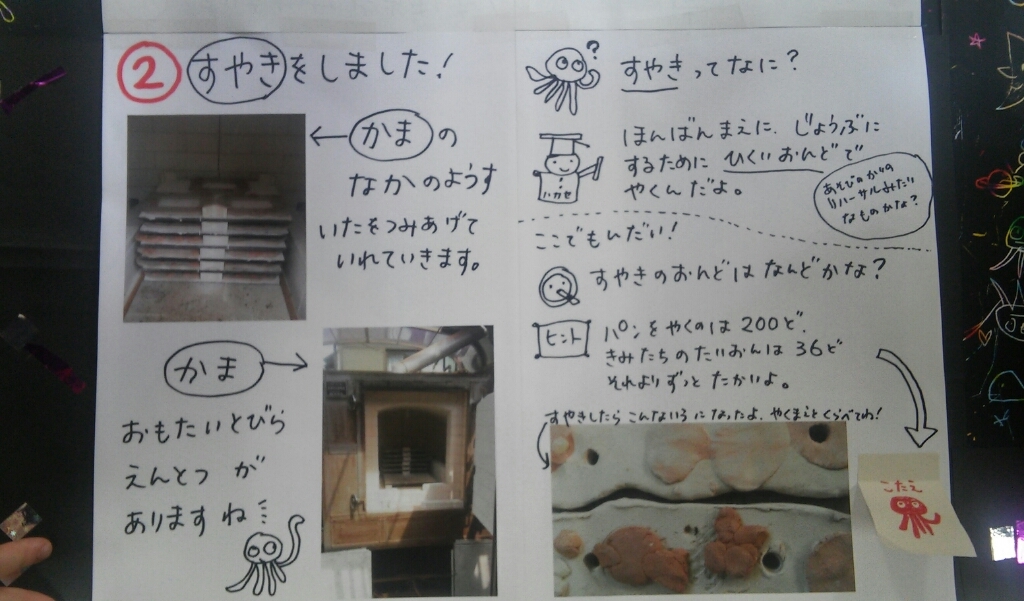 ② すやきをしました!
←かまの
なかのようす
いたをつみあげて
いれていきます。
かま→
おもたいとびら
えんとつ が
ありますね
?
すやきってなに?
ほんばんまえに、じょうぶに
するために ひくいおんどで
やくんだよ。
はかせ
あそびのかいの
リハーサルみたい
なものかな?
ここでもんだい!
Q すやきのおんどはなんどかな?
ヒント
パンをやくのは200ど、
きみたちのたいおんは36ど
それよりずっと たかいよ。
すやきしたら こんないろになったよ、やくまえとくらべてね!
こたえ